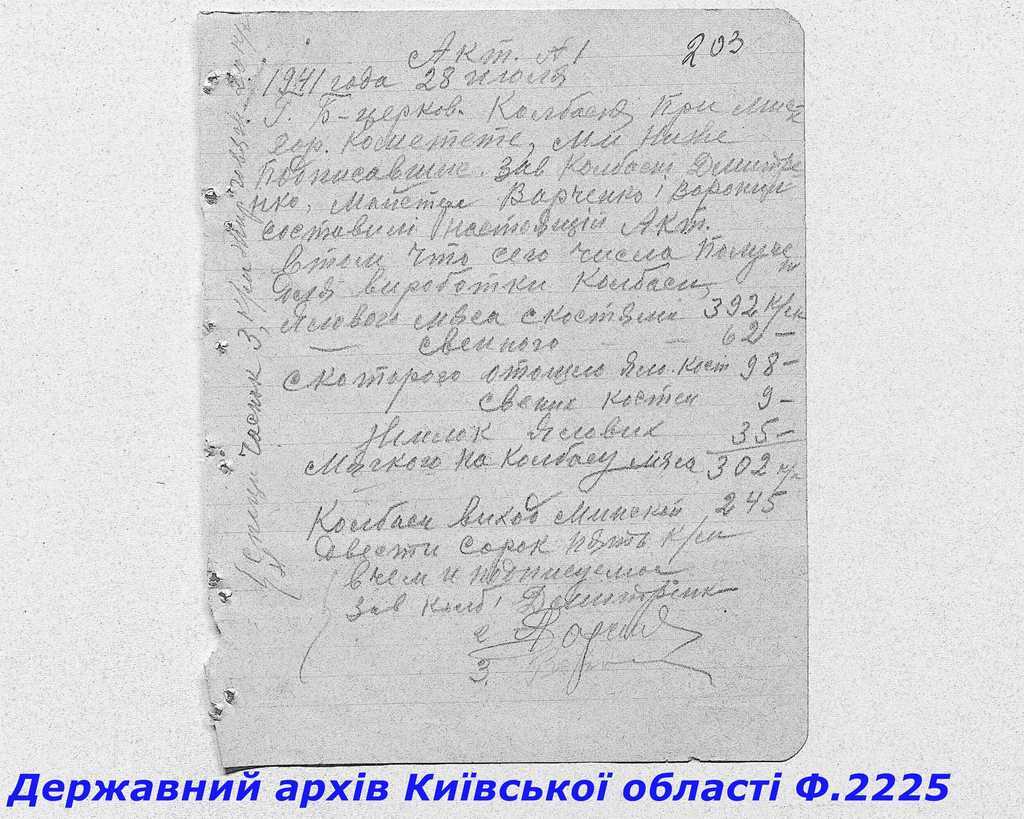 203
Акт. № 1
1941 года 28 июля
Г. Б-церков. Колбасня При Мяс-
гор. Кометете, Мы Ниже
Подписавшие. Зав Колбасн Демитре
нко, Майстри Варченко і Воронци
составилі настоящій Акт.
втом что сего числа Получе
для виработки Колбаси
Ялового мяса скостями 392 К/гм
— свенного — — 62 —
скоторого отошло Яло. Кост 98 —
свених костеи 9 —
Ялових 35 —
Мягкого на Колбасу мяса 302
Колбаси виход Минской 245
двести сорок пять К/гм
в чем и подписуемся
Зав Колб. Демитренк
2
3.
часнок 3
Державний архів Київської області Ф.2225